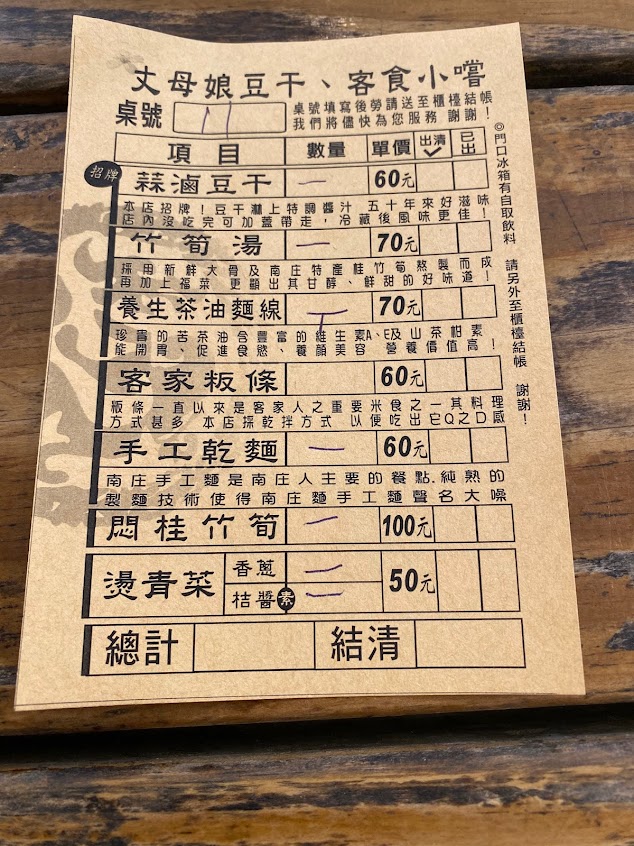 丈母娘豆干、客食小嚐
桌號 11 桌號填寫後勞請送至櫃檯結帳
我們將儘快為您服務 謝謝!
項目 數量 單價 出清✓ 已出
招牌
蒜滷豆干 一 60元
本店招牌!豆干淋上特調醬汁 五十年來好滋味
店內沒吃完可加蓋帶走,冷藏後風味更佳!
竹筍湯 一 70元
採用新鮮大骨及南庄特產桂竹筍熬製而成
再加上福菜 更顯出其甘醇、鮮甜的好味道!
養生茶油麵線 丅 70元
珍貴的苦茶油含豐富的維生素A、E及山茶柑素
能開胃、促進食慾、養顏美容 營養價值高!
客家粄條 60元
粄條一直以來是客家人之重要米食之一其料理
方式甚多 本店採乾拌方式 以便吃出它Q之D感
手工乾麵 一 60元
南庄手工麵是南庄人主要的餐點.純熟的
製麵技術使得南庄麵手工麵聲名大噪
悶桂竹筍 一 100元
燙青菜 香蔥 二 50元
桔醬素 二
總計 結清
◎門口冰箱有自取飲料 請另外至櫃檯結帳 謝謝!